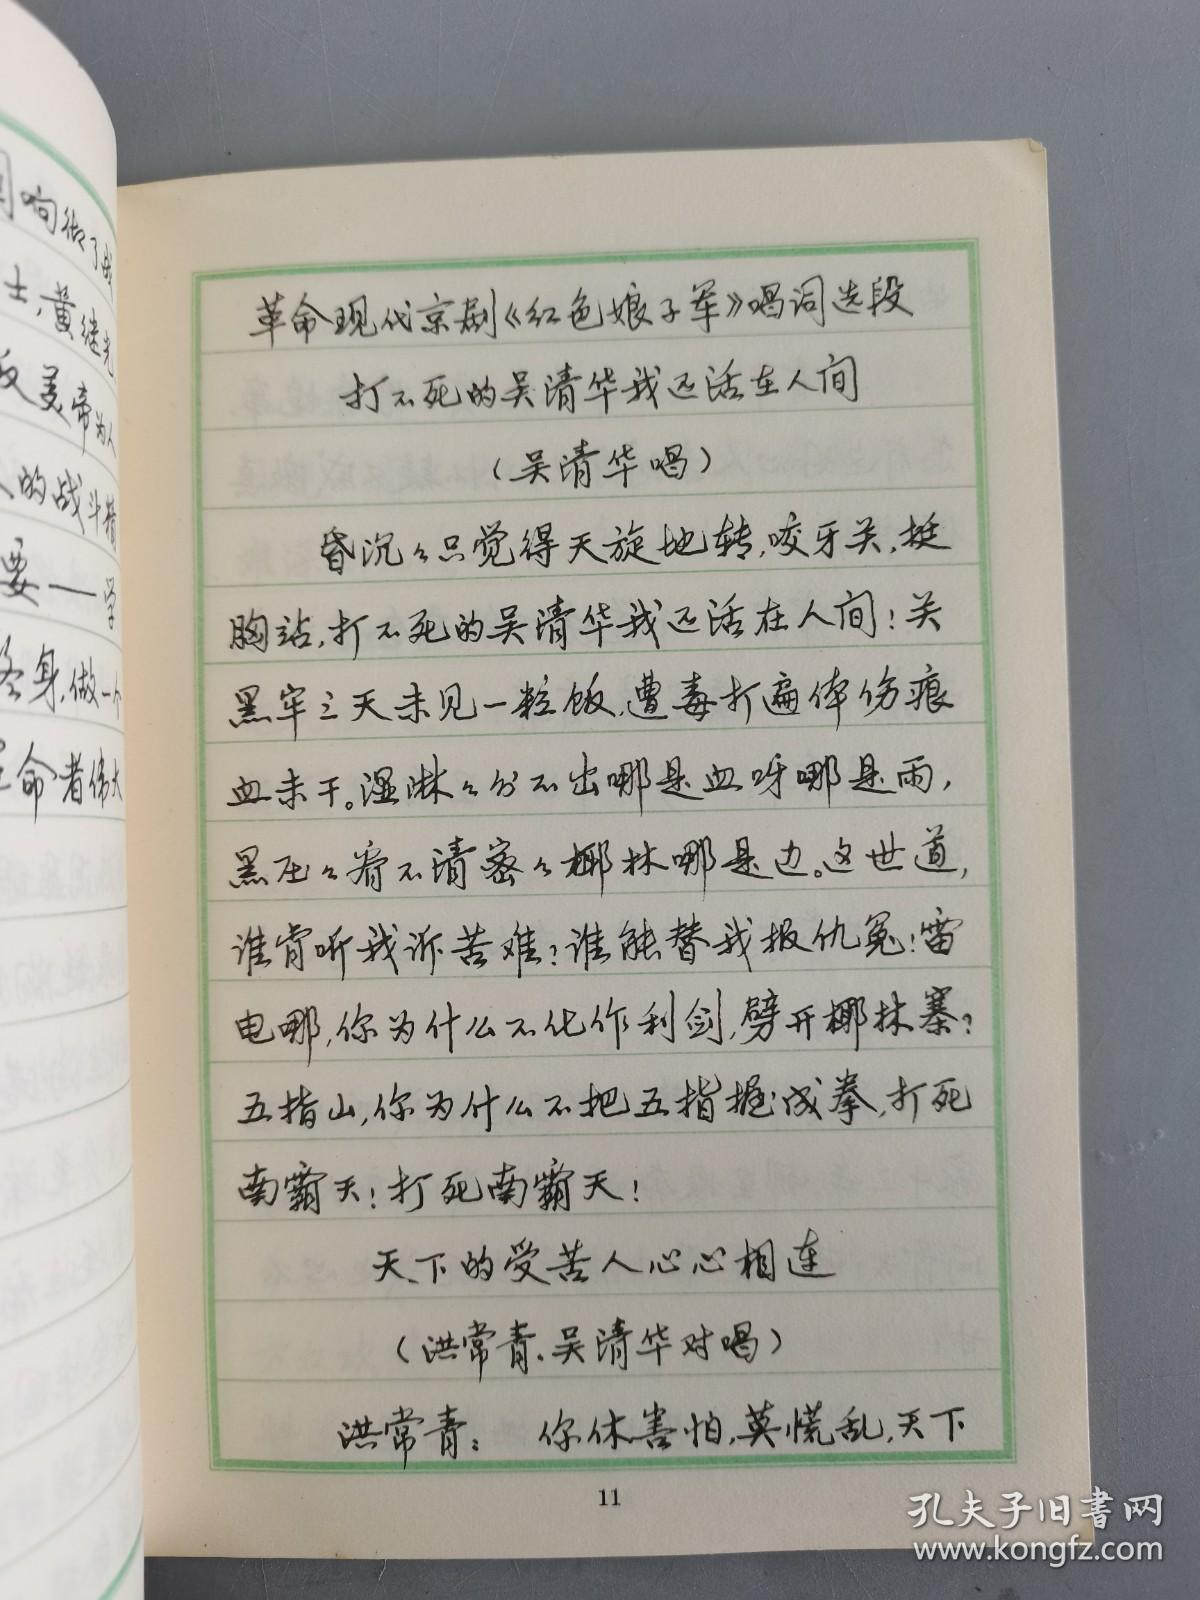 响做了战
士,黄继光
反美帝为人
人的战斗精
要一学
终身,做一个
革命者伟大
革命现代京剧《红色娘子军》唱词选段
打不死的吴清华我还活在人间
(吴清华唱)
昏沉々只觉得天旋地转,咬牙关,挺
胸站,打不死的吴清华我还活在人间!关
黑牢三天未见一粒饭,遭毒打遍体伤痕
血未干。湿淋々分不出哪是血呀哪是雨,
黑压々看不清密々椰林哪是边。这世道,
谁肯听我诉苦难?谁能替我报仇冤!雷
电哪,你为什么不化作利剑,劈开椰林寨?
五指山,你为什么不把五指握成拳,打死
南霸天!打死南霸天!
天下的受苦人心心相连
(洪常青、吴清华对唱)
洪常青: 你休害怕,莫慌乱,天下
11
孔夫子旧书网
www.kongfz.com